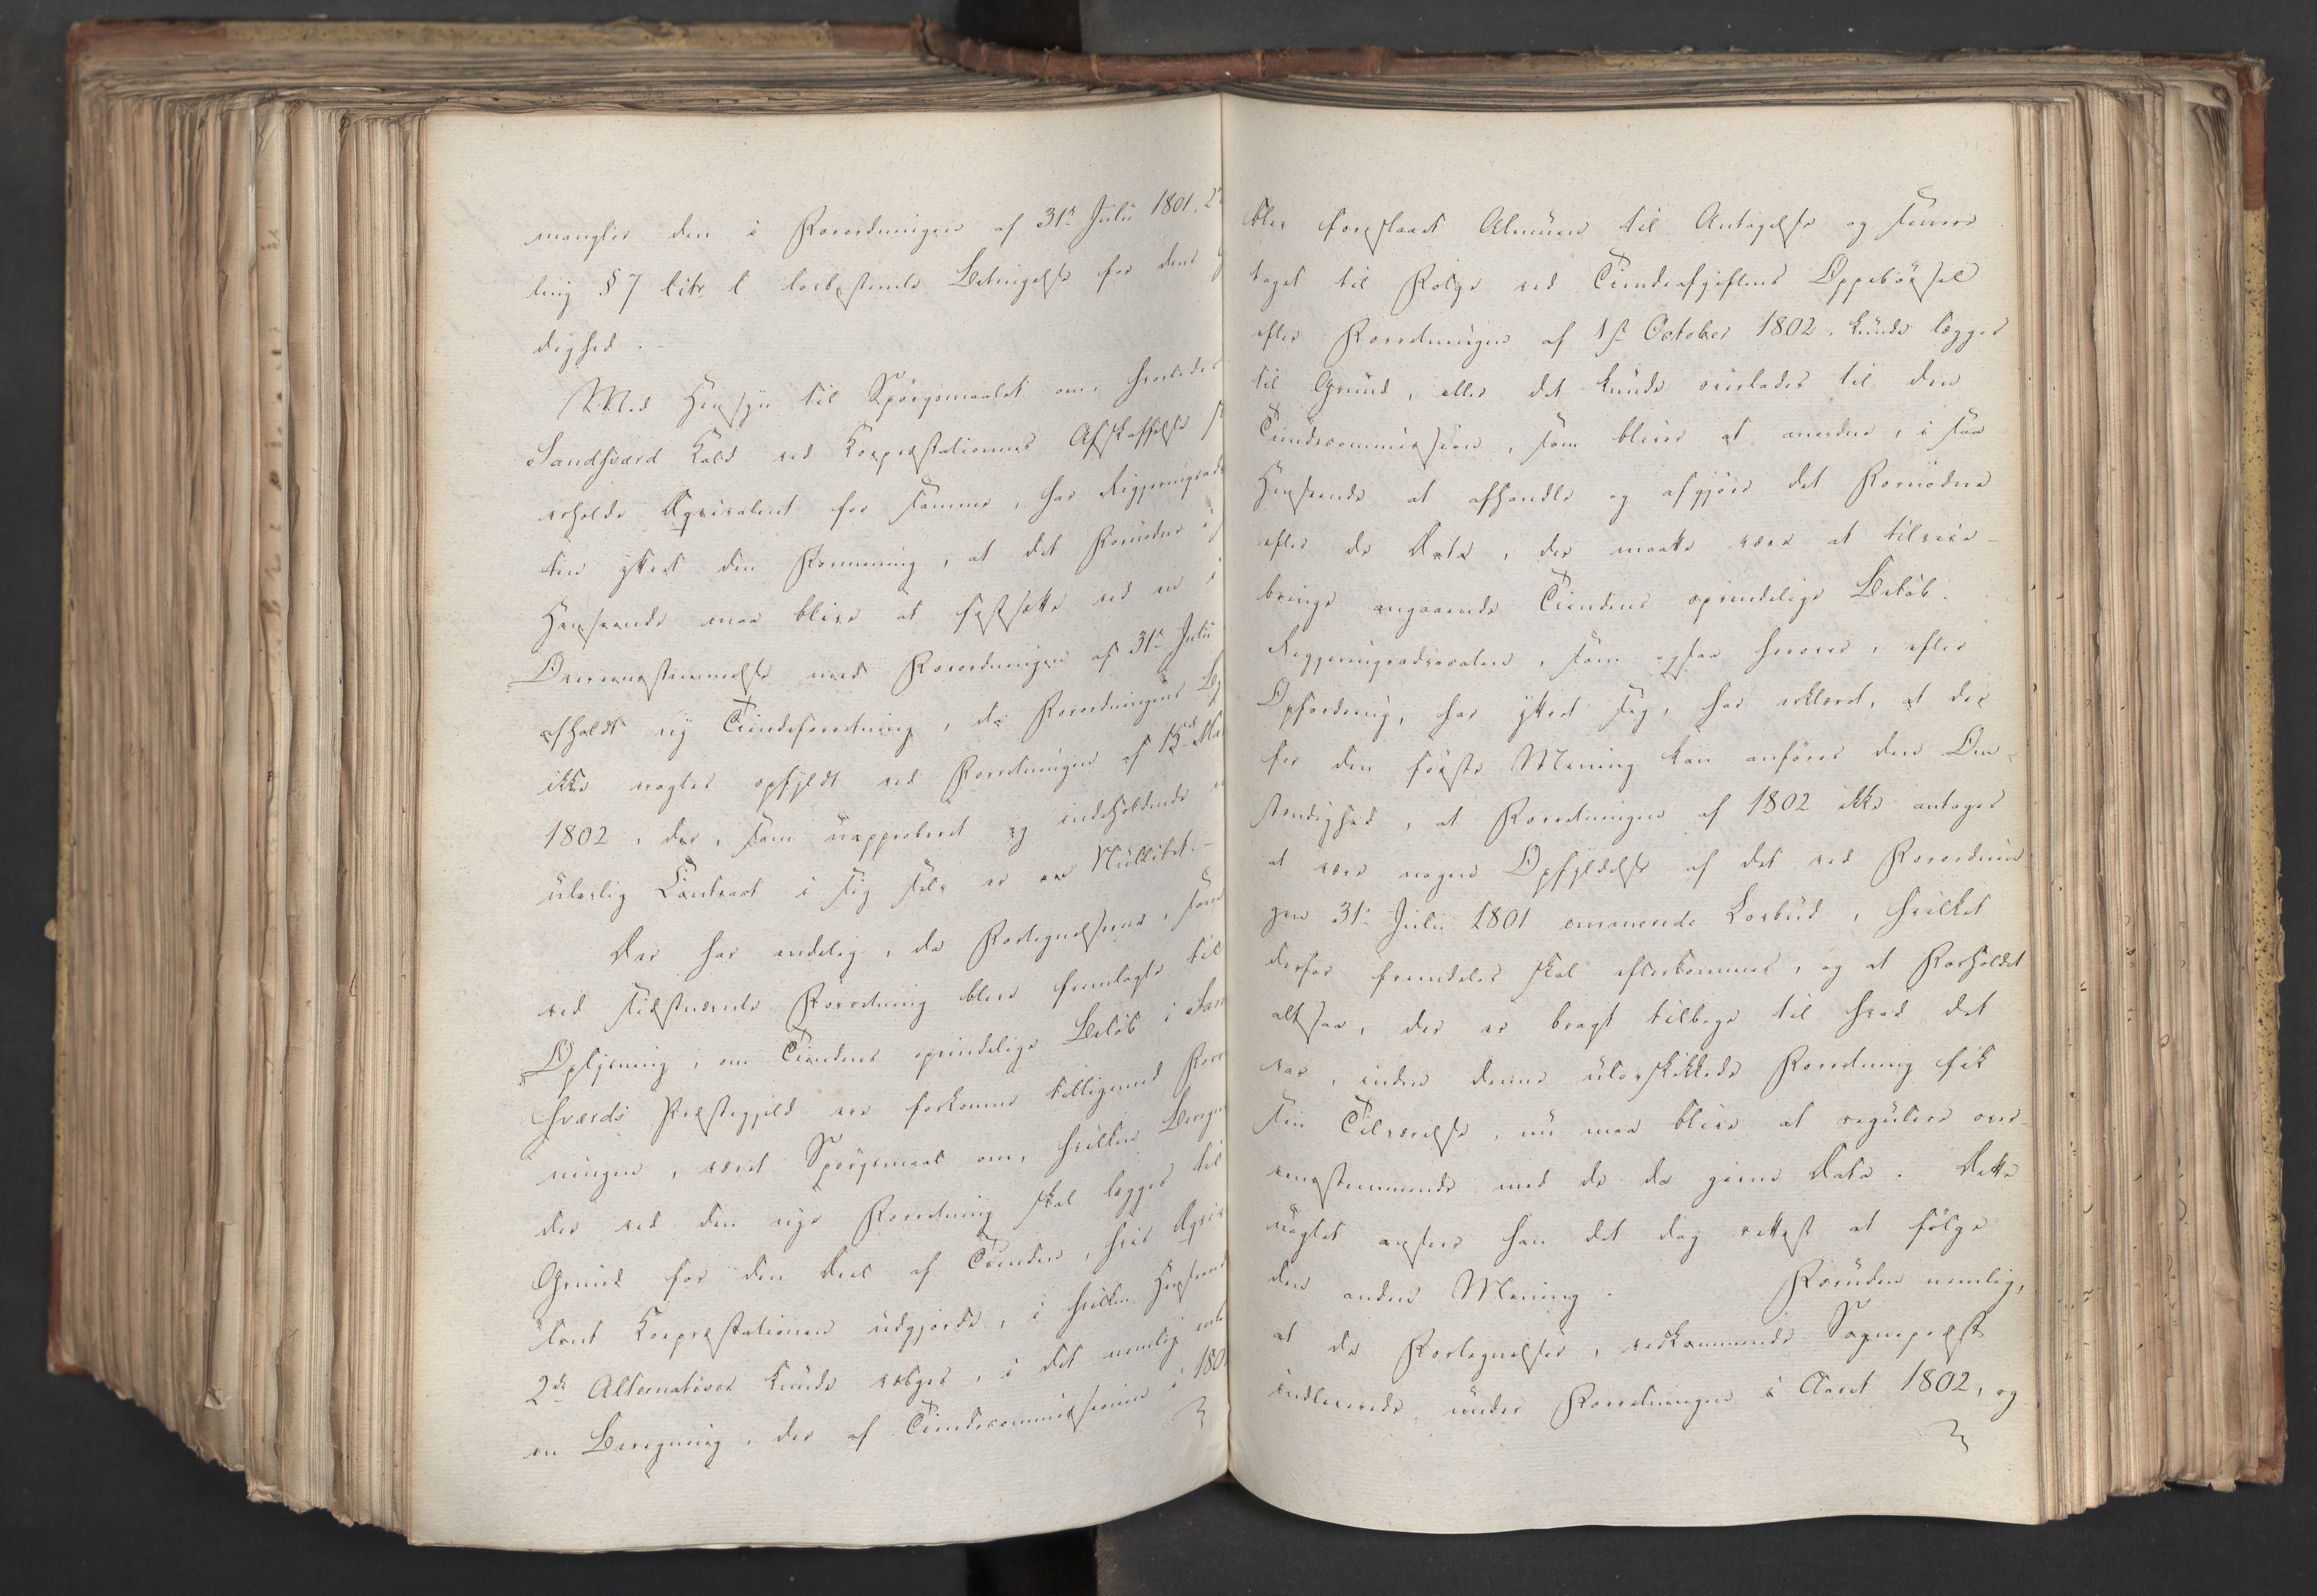 mangler den i Forordningen af 31te Julii 1801, 2
ling § 7 litr. l lovbestemte Betingelse for dens
dighed.
Med Hensyn til Spörgsmaalet om, hvorledes
Sandsværd Kald ved Kornpræstationens Afskaffelse
erholde Æqvivalent for samme, har Regjeringsadvoca
ten yttret den Formening, at det Fornödne i
Henseende maa blive at fastsætte ved en i
Overeensstemmelse med Forordningen af 31te Julii
afholdt ny Tiendeforretning, da Forordningens
ikke vragtes opfyldt ved Forretningen af 15de
1802, der, som uapproberet og indeholdende
ulovlig Contract i sig selv er en Nullitet.
Der har endelig, da Fortegnelserne, som
ved sidstnævnte Forretning bleve fremlagte til
Oplysning, om Tiendens oprindelige Belöb i San
sværds Præstegjeld ere forkomne tilligemed Forret
ningen, været Spörgsmaal om, hvilken Beregn
der ved den nye Forretning skal lægges til
Grund for den Deel af Tienden, hvis Æqviva
lent Kornpræstationen udgjorde, i hvilken Henseende
2de Alternativer kunde vælges, i det nemlig enten
en Beregning, der af Tiendecommissionen i 1801
blev foreslaaet Almuen til Antagelse og senere
taget til Fölge ved Tiendeafgiftens Oppebörsel
efter Forretningen af 1ste October 1802, kunde lægges
til Grund, eller det kunde overlades til den
Tiendecommission, som bliver at anordne, i saa
Henseende at afhandle og afgjöre det Fornödne
efter de Data, der maatte være at tilveie-
bringe angaaende Tiendens oprindelige Belöb.
Regjeringsadvocaten, som ogsaa herover, efter
Opfordring, har yttret sig, har erklæret, at der
for den förste Mening kan anföres den Om-
stændighed, at Forretningen af 1802 ikke antages
at være nogen Opfyldelse af det ved Forordnin
gen 31te Julii 1801 emanerede Lovbud, hvilket
derfor fremdeles skal efterkommes, og at Forholdet
altsaa, der er bragt tilbage til hvad det
var, inden denne ulovskikkede Forretning fik
sin Tilværelse, nu maa blive at regulere over-
eensstemmende med de da givne Data. Dette
uagtet anseer han det dog rettest at fölge
den anden Mening. Foruden nemlig,
at de Fortegnelser, vedkommende Sognepræst
indleverede under Forretningen i Aaret 1802, og